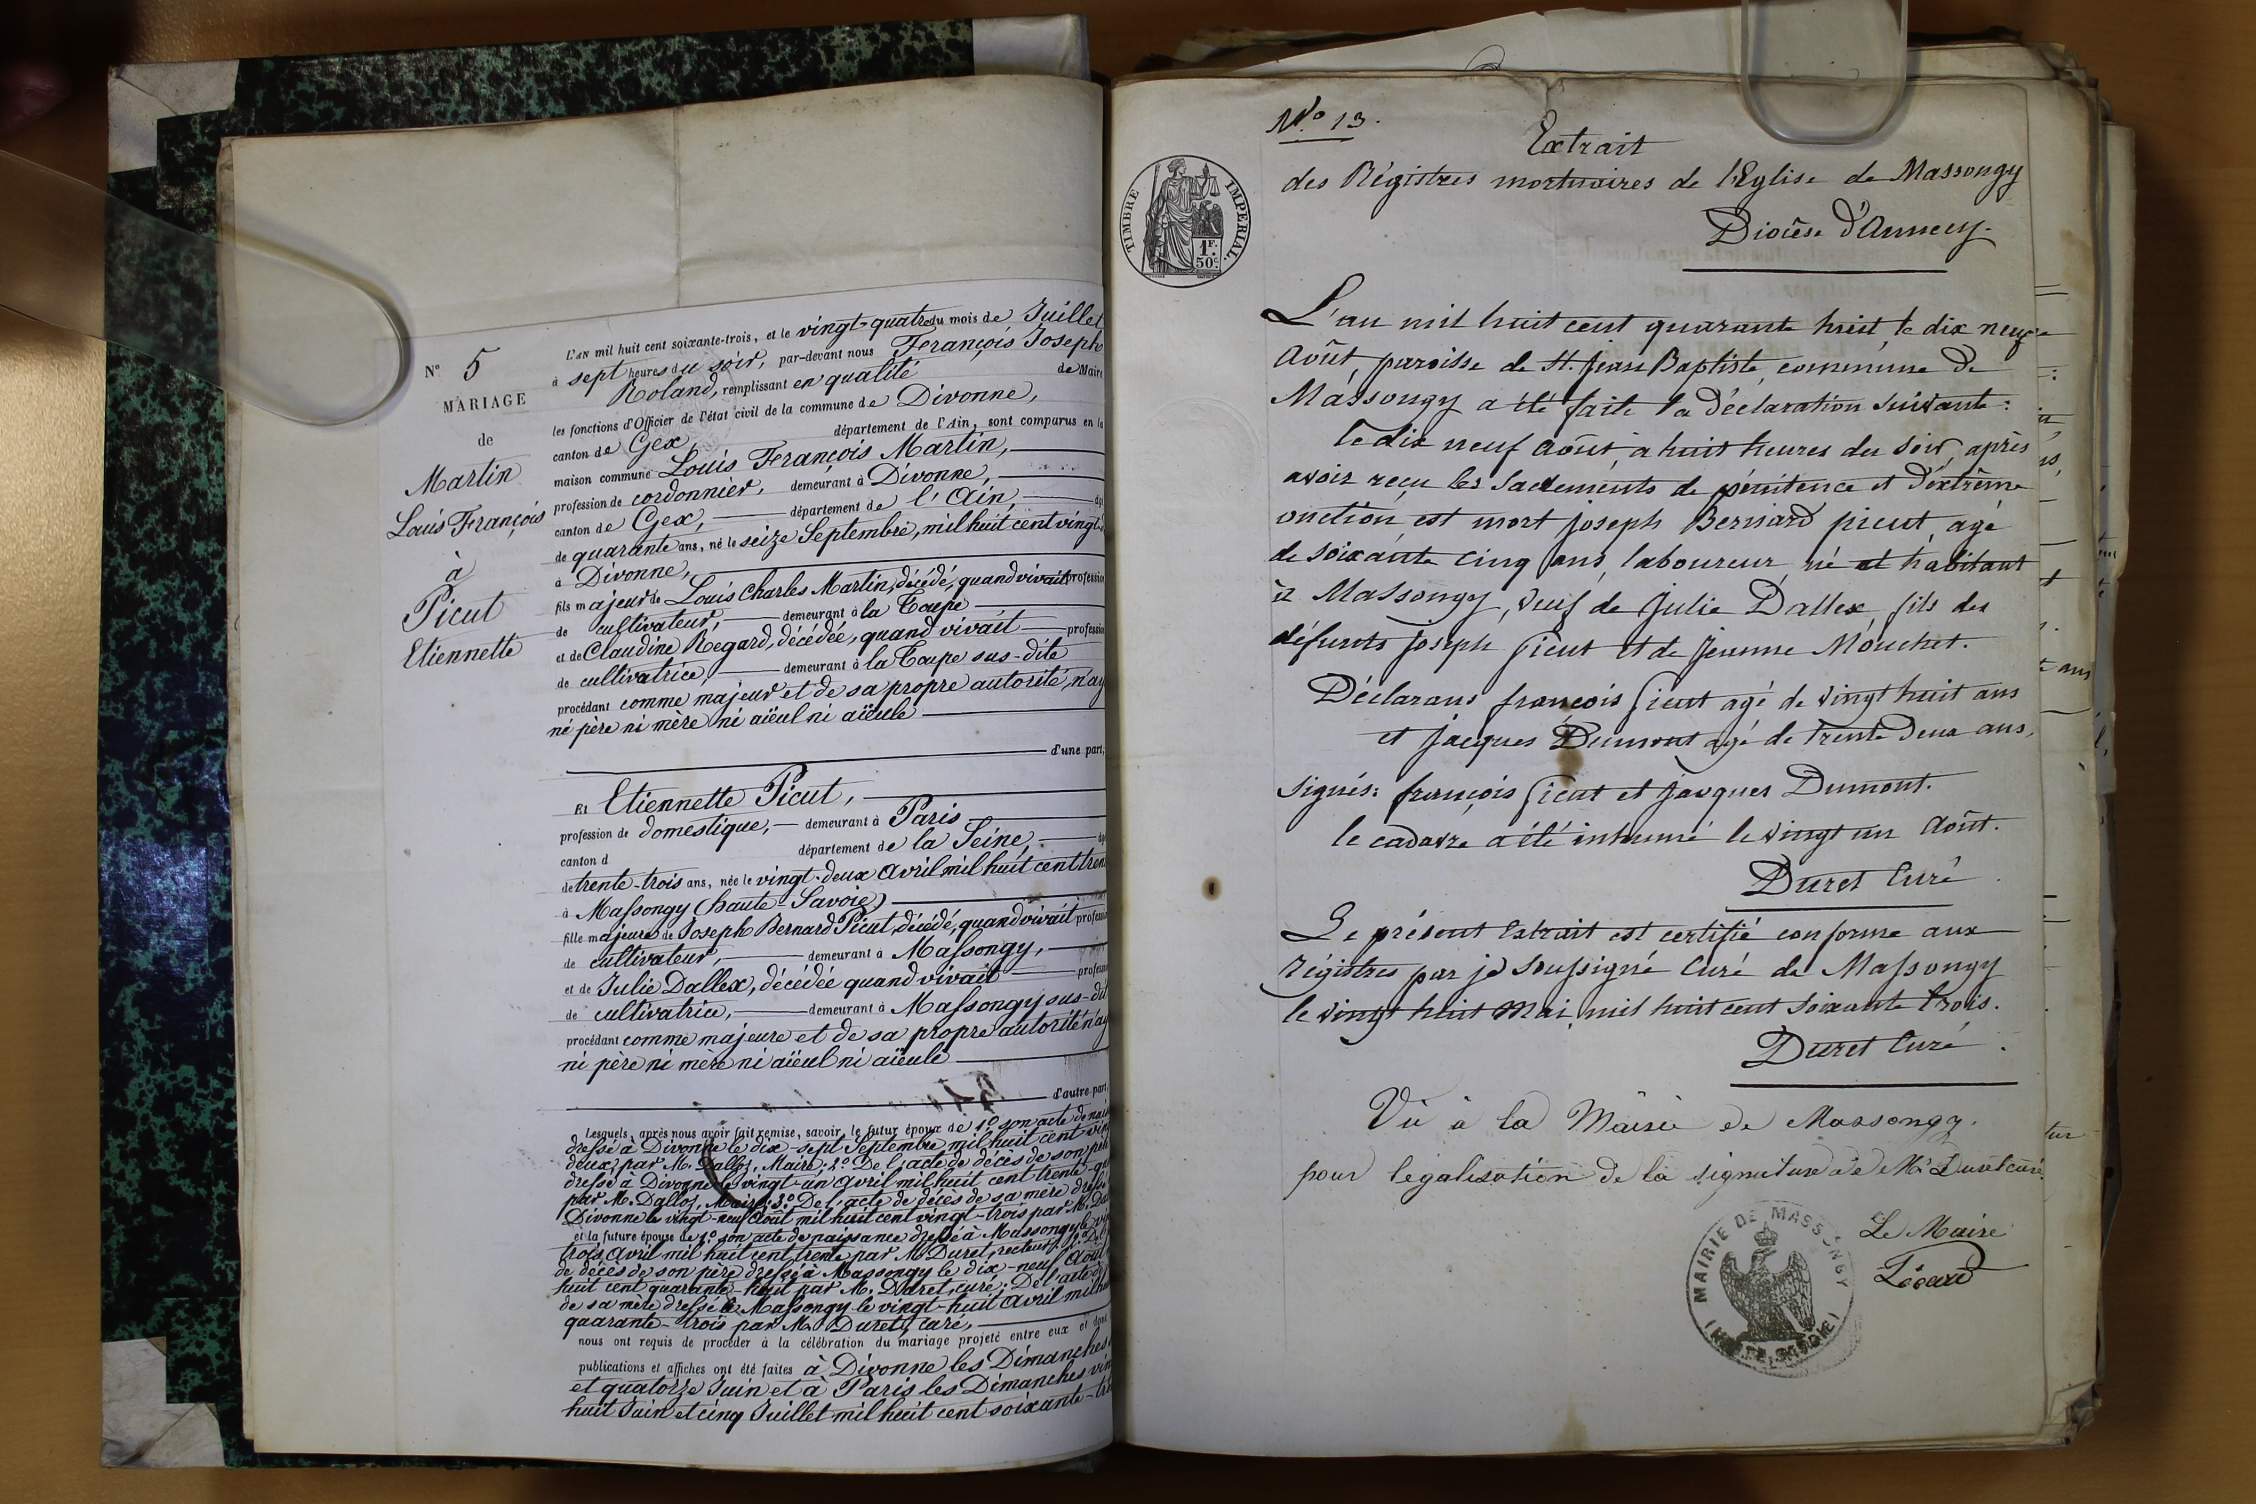 N° 5
MARIAGE
de
Martin
Louis François
à
Picut
Etiennette
L'AN mil huit cent soixante-trois, et le vingt-quatre du mois de Juillet
à sept heures du soir, par-devant nous François Joseph
Roland, remplissant en qualité de Maire
les fonctions d'Officier de l'état civil de la commune de Divonne,
canton de Gex, département de l'Ain, sont comparus en la
maison commune Louis François Martin,
profession de cordonnier, demeurant à Divonne,
canton de Gex, département de l'Ain,
de quarante ans, né le seize Septembre, mil huit cent vingt-
à Divonne,
fils majeur de Louis Charles Martin, décédé, quand vivait profession
de cultivateur, demeurant à la Toupe
et de Claudine Regard, décédée, quand vivait profession
de cultivatrice, demeurant à la Toupe sus-dite
procédant comme majeur et de sa propre autorité, n'ay
né père ni mère ni aïeul ni aïeule
d'une part,
Et Etiennette Picut,
profession de domestique, demeurant à Paris
canton d département de la Seine,
de trente-trois ans, née le vingt-deux Avril mil huit cent tren
à Massongy (haute Savoie)
fille majeure de Joseph Bernard Picut, décédé, quand vivait profession
de cultivateur, demeurant à Massongy,
et de Julie Dallex, décédée quand vivait profession
de cultivatrice, demeurant à Massongy sus-dit
procédant comme majeure et de sa propre autorité n'ay
ni père ni mère ni aïeul ni aïeule
d'autre part,
Lesquels, après nous avoir fait remise, savoir, le futur époux de 1° son acte de nais
dressé à Divonne le dix-sept Septembre mil huit cent vin
deux, par M. Dalloz, Maire; 2° De l'acte de décès de son père
dressé à Divonne le vingt-un avril mil huit cent trente-qu
par M. Dalloz, Maire; 3° De l'acte de décès de sa mère dressé
Divonne le vingt-neuf Août mil huit cent vingt-trois par M. Dal
et la future épouse de 1° son acte de naissance dressé à Massongy le vin
trois avril mil huit cent trente par M. Duret, recteur; 2° De l'
de décès de son père dressé à Massongy le dix-neuf Août
huit cent quarante-huit par M. Duret, curé; De l'acte de
de sa mère dressé à Massongy le vingt-huit Avril mil hu
quarante-trois par M. Duret, curé,
nous ont requis de procéder à la célébration du mariage projeté entre eux et dont
publications et affiches ont été faites à Divonne les Dimanches
et quatorze Juin et à Paris les Dimanches vin
huit Juin et cinq Juillet mil huit cent soixante-tr
N° 13.
TIMBRE IMPERIAL.
1F. 50c.
Extrait
des Régistres mortuaires de l'Eglise de Massongy
Diocèse d'Annecy.
L'an mil huit cent quarante huit, le dix neuf
Août, paroisse de St. Jean Baptiste, commune de
Massongy a été faite la déclaration suivante:
le dix neuf Août, à huit heures du soir, après
avoir reçu les Sacrements de pénitence et d'extrême
onction, est mort Joseph Bernard picut, agé
de soixante cinq ans, laboureur, né et habitant
à Massongy, veuf de Julie Dallex, fils des
défunts Joseph picut et de Jeanne Mouchet.
Déclarans françois picut agé de vingt huit ans
et Jacques Dumont agé de trente deux ans,
signés: françois picut et Jacques Dumont.
le cadavre a été inhumé le vingt un Août.
Duret Curé
Le présent Extrait est certifié conforme aux
régistres par je soussigné Curé de Massongy
le vingt huit Mai, mil huit cent soixante trois.
Duret Curé.
Vu à la Mairie de Massongy.
pour légalisation de la signature de Mr Duret curé.
Le Maire
MAIRIE DE MASSONGY
(HAUTE SAVOIE)